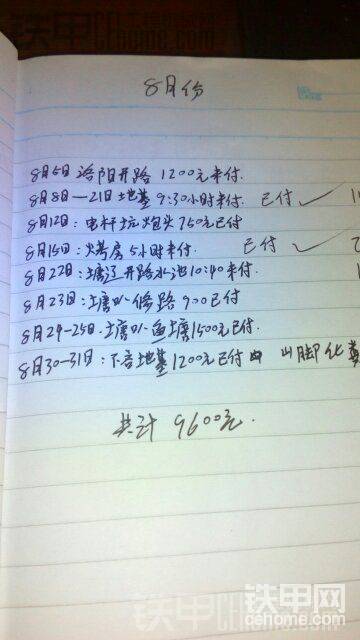 8月份
8月5日 洛阳开路 1200元未付.
8月8日—21日 土地基 9:30小时未付. 已付 ✓
8月12日: 电杆坑炮头 750元已付
8月15日: 烤房 5小时未付. 已付 ✓
8月22日: 塘辺开路水池 10:40未付.
8月23日: 土唐 修路 900已付
8月24-25日: 土唐 鱼塘1500元已付.
8月30-31日: 下 地基1200元已付 山脚化粪
共计 9600元.
铁甲网
cehome.com